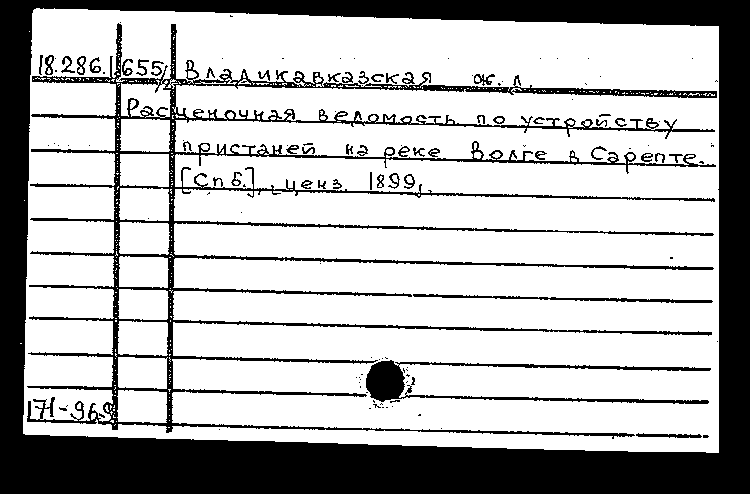 18.286.1. 655/2 Владикавказская ж. д.
Расценочная ведомость по устройству
пристаней на реке Волге в Сарепте.
[Спб.], ценз. 1899.
171-969